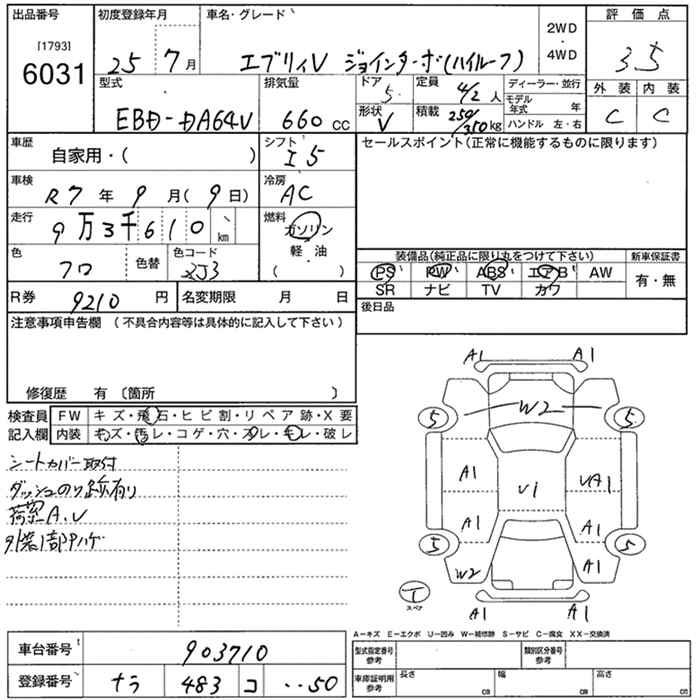 出品番号 初度登録年月 車名・グレード 評価点
[1793]
6031
25 7月
エブリィV ジョインターボ(ハイルーフ)
2WD
4WD
3.5
型式 排気量 ドア 定員 ディーラー・並行 外装 内装
EBD-DA64V 660 cc 5 4/2 人
モデル年式 年
形状 V 積載 250/350 kg ハンドル 左・右
C C
車歴 自家用・( ) シフト I5
セールスポイント(正常に機能するものに限ります)
車検 R7年 9月(9日) 冷房 AC
走行 9万3千610 km 燃料 ガソリン
軽・油
( )
色 クロ 色替 色コード ZJ3
装備品(純正品に限り丸をつけて下さい) 新車保証書
PS PW ABS エアB AW 有・無
SR ナビ TV カワ
R券 9210 円 名変期限 月 日
後日品
注意事項申告欄 (不具合内容等は具体的に記入して下さい)
修復歴 有 〔箇所 〕
検査員 FW キズ・飛石・ヒビ割・リペア跡・X要
記入欄 内装 キズ・汚レ・コゲ・穴・スレ・キレ・破レ
シートカバー取付
ダッシュのり跡有り
荷室A.U
外装1部色ハゲ
A1 A1
W2
5 5
A1 UA1
U1
A1 A1
5 5
W2 A1
T
スペア
A1 A1
A-キズ E-エクボ U-凹み W-補修跡 S-サビ C-腐食 XX-交換済
車台番号 903710
型式指定番号 参考 類別区分番号 参考
登録番号 ナラ 483 コ ・・50
車庫証明用 参考 長さ cm 幅 cm 高さ cm